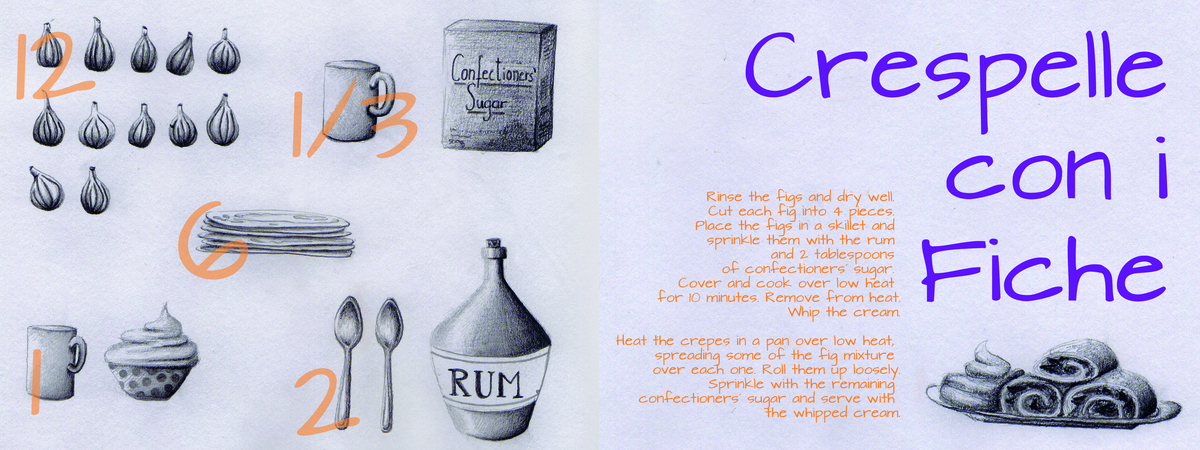 12
1/3
Confectioners'
Sugar
6
1
2
RUM
Crespelle
con i
Fiche
Rinse the figs and dry well.
Cut each fig into 4 pieces.
Place the figs in a skillet and
sprinkle them with the rum
and 2 tablespoons
of confectioners' sugar.
Cover and cook over low heat
for 10 minutes. Remove from heat.
Whip the cream.
Heat the crepes in a pan over low heat,
spreading some of the fig mixture
over each one. Roll them up loosely.
Sprinkle with the remaining
confectioners' sugar and serve with
the whipped cream.